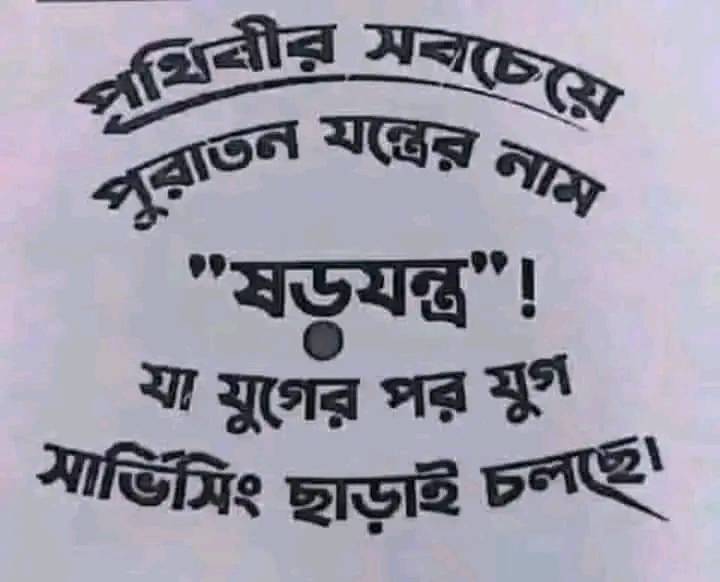 পৃথিবীর সবচেয়ে
পুরাতন যন্ত্রের নাম
"ষড়যন্ত্র"!
যা যুগের পর যুগ
সার্ভিসিং ছাড়াই চলছে।